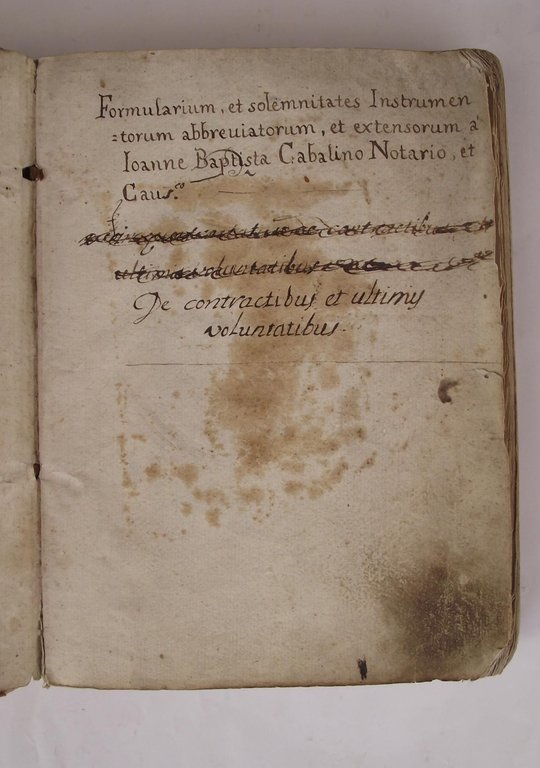 Formularium, et solēmnitates Instrumen
=torum abbreviatorum, et extensorum à
Ioanne Baptista Cabalino Notario, et
Caus.º
voluntatibus
De contractibus et ultimis
voluntatibus.